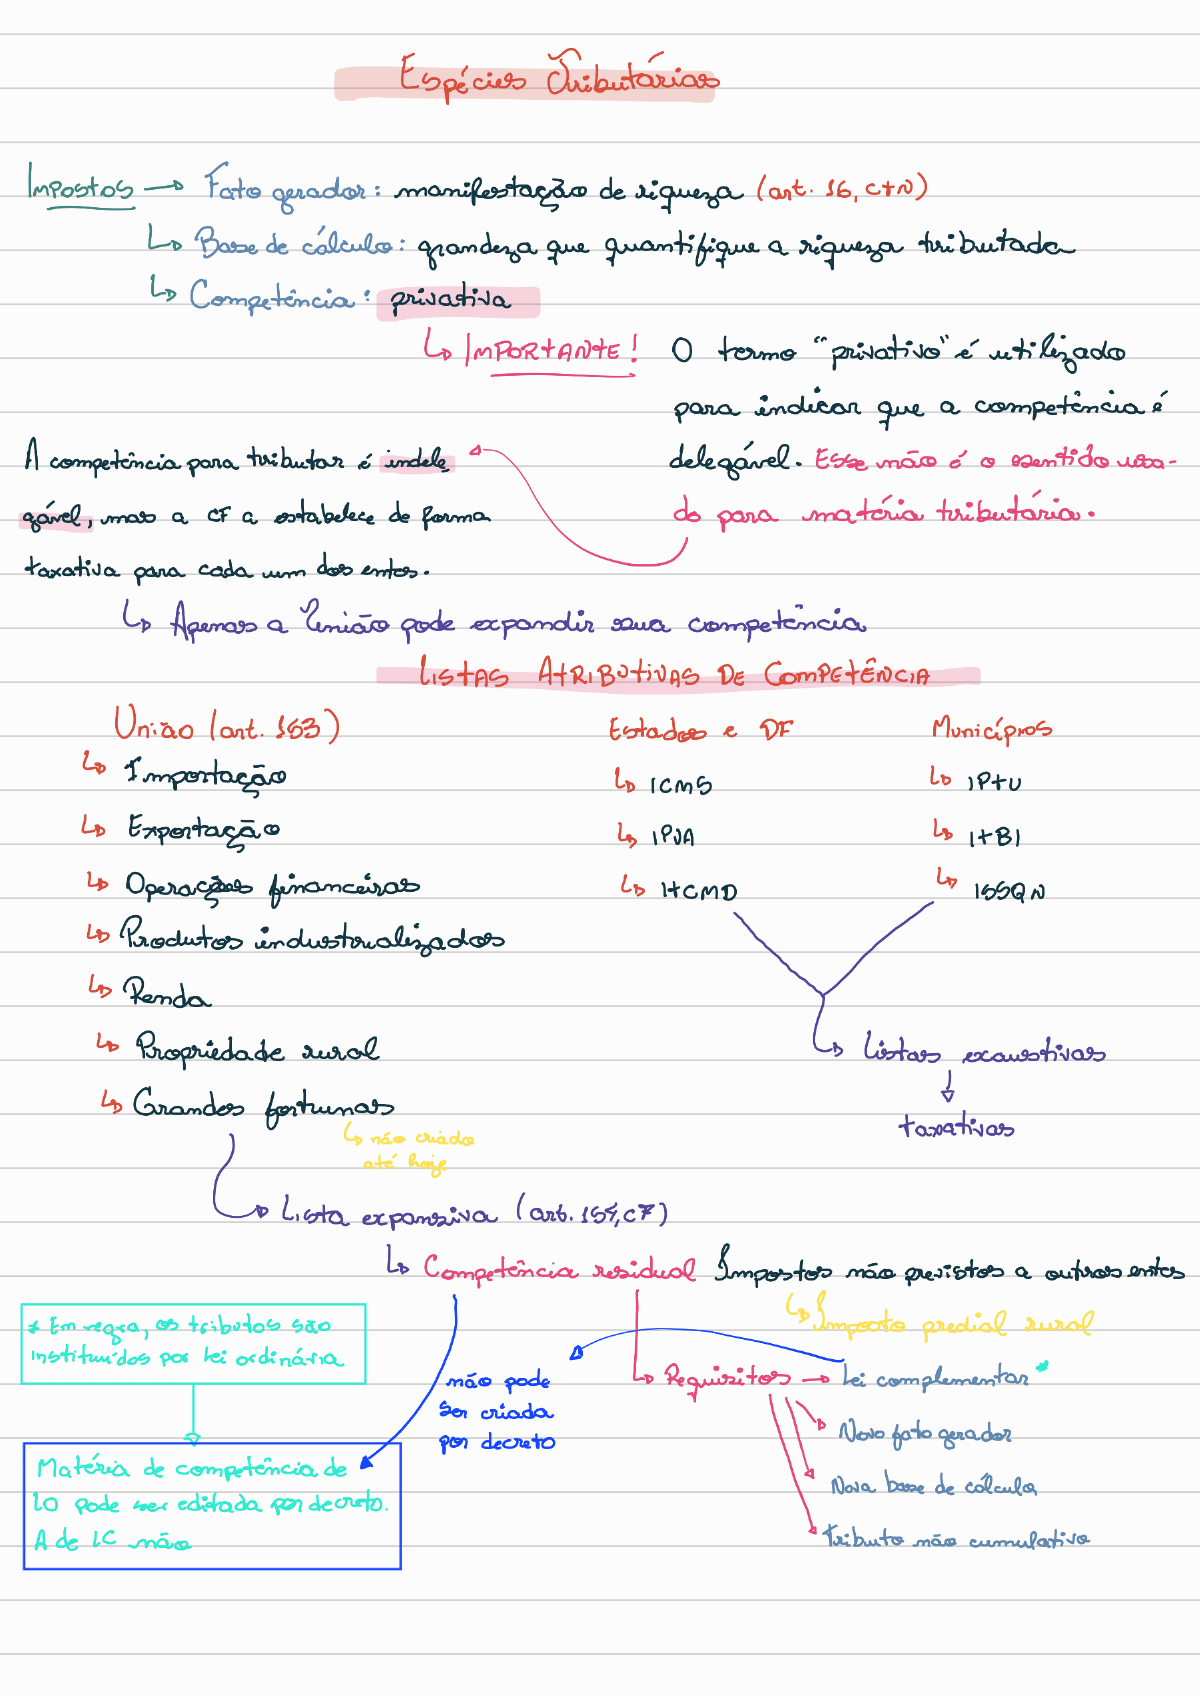 Espécies Tributárias
Impostos → Fato gerador: manifestação de riqueza (art. 16, CTN)
↳ Base de cálculo: grandeza que quantifique a riqueza tributada
↳ Competência: privativa
↳ IMPORTANTE! O termo "privativo" é utilizado
para indicar que a competência é
delegável. Esse não é o sentido usa-
do para matéria tributária.
A competência para tributar é indele
gável, mas a CF a estabelece de forma
taxativa para cada um dos entes.
↳ Apenas a União pode expandir sua competência
LISTAS ATRIBUTIVAS DE COMPETÊNCIA
União (art. 153)
↳ Importação
↳ Exportação
↳ Operações financeiras
↳ Produtos industrializados
↳ Renda
↳ Propriedade rural
↳ Grandes fortunas
↳ não criado
até hoje
Estados e DF
↳ ICMS
↳ IPVA
↳ ITCMD
Municípios
↳ IPTU
↳ ITBI
↳ ISSQN
↳ Listas exaustivas
taxativas
Lista expansiva (art. 154, CF)
↳ Competência residual Impostos não previstos a outros entes
↳ Imposto predial rural
↳ Requisitos → Lei complementar *
Novo fato gerador
Nova base de cálculo
Tributo não cumulativo
não pode
ser criada
por decreto
* Em regra, os tributos são
instituídos por lei ordinária
Matéria de competência de
LO pode ser editada por decreto.
A de LC não